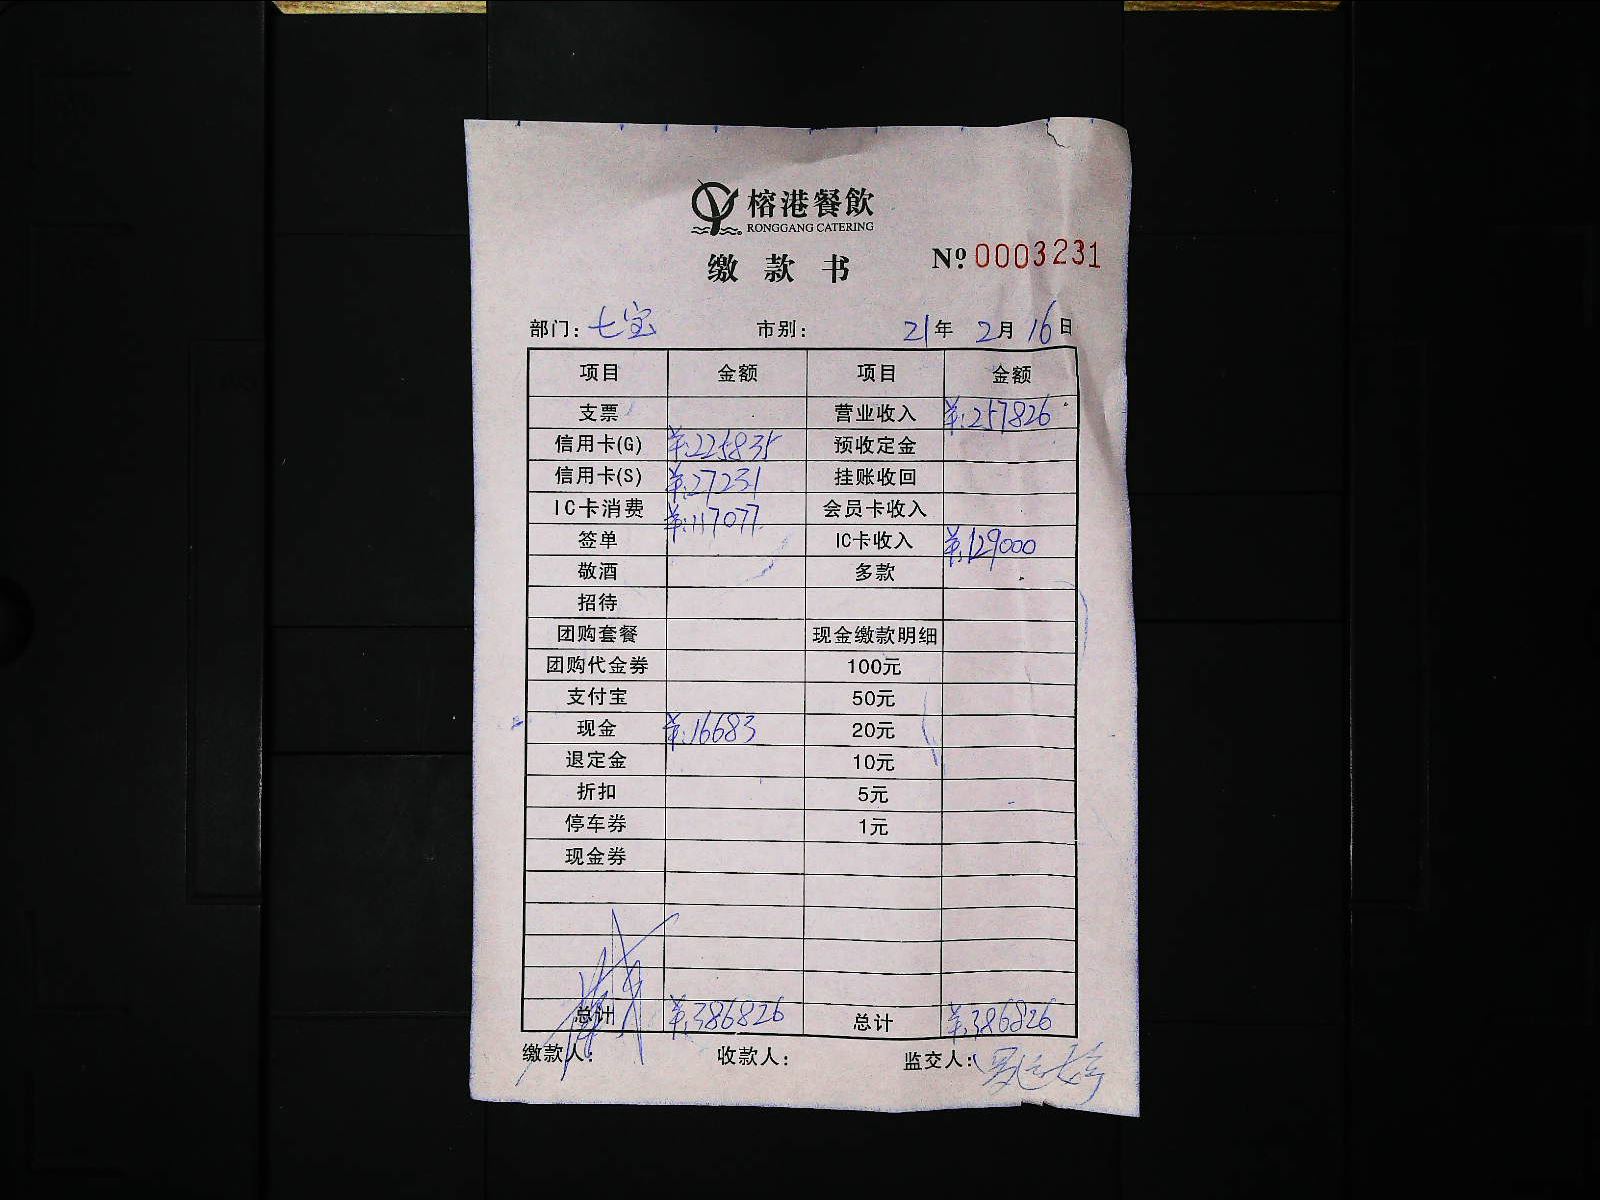 榕港餐飲
RONGGANG CATERING
缴款书 Nº 0003231
部门: 七宝 市别: 21年 2月 16日
项目 金额 项目 金额
支票 营业收入 ¥:257826
信用卡(G) ¥:225835 预收定金
信用卡(S) ¥:27231 挂账收回
IC卡消费 ¥:117077 会员卡收入
签单 IC卡收入 ¥:129000
敬酒 多款
招待
团购套餐 现金缴款明细
团购代金券 100元
支付宝 50元
现金 ¥:16683 20元
退定金 10元
折扣 5元
停车券 1元
现金券
总计 ¥:386826 总计 ¥:386826
缴款人: 收款人: 监交人: